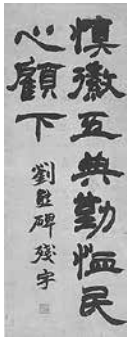 慎徽五典勤恤民
心顧下
劉熊碑殘字